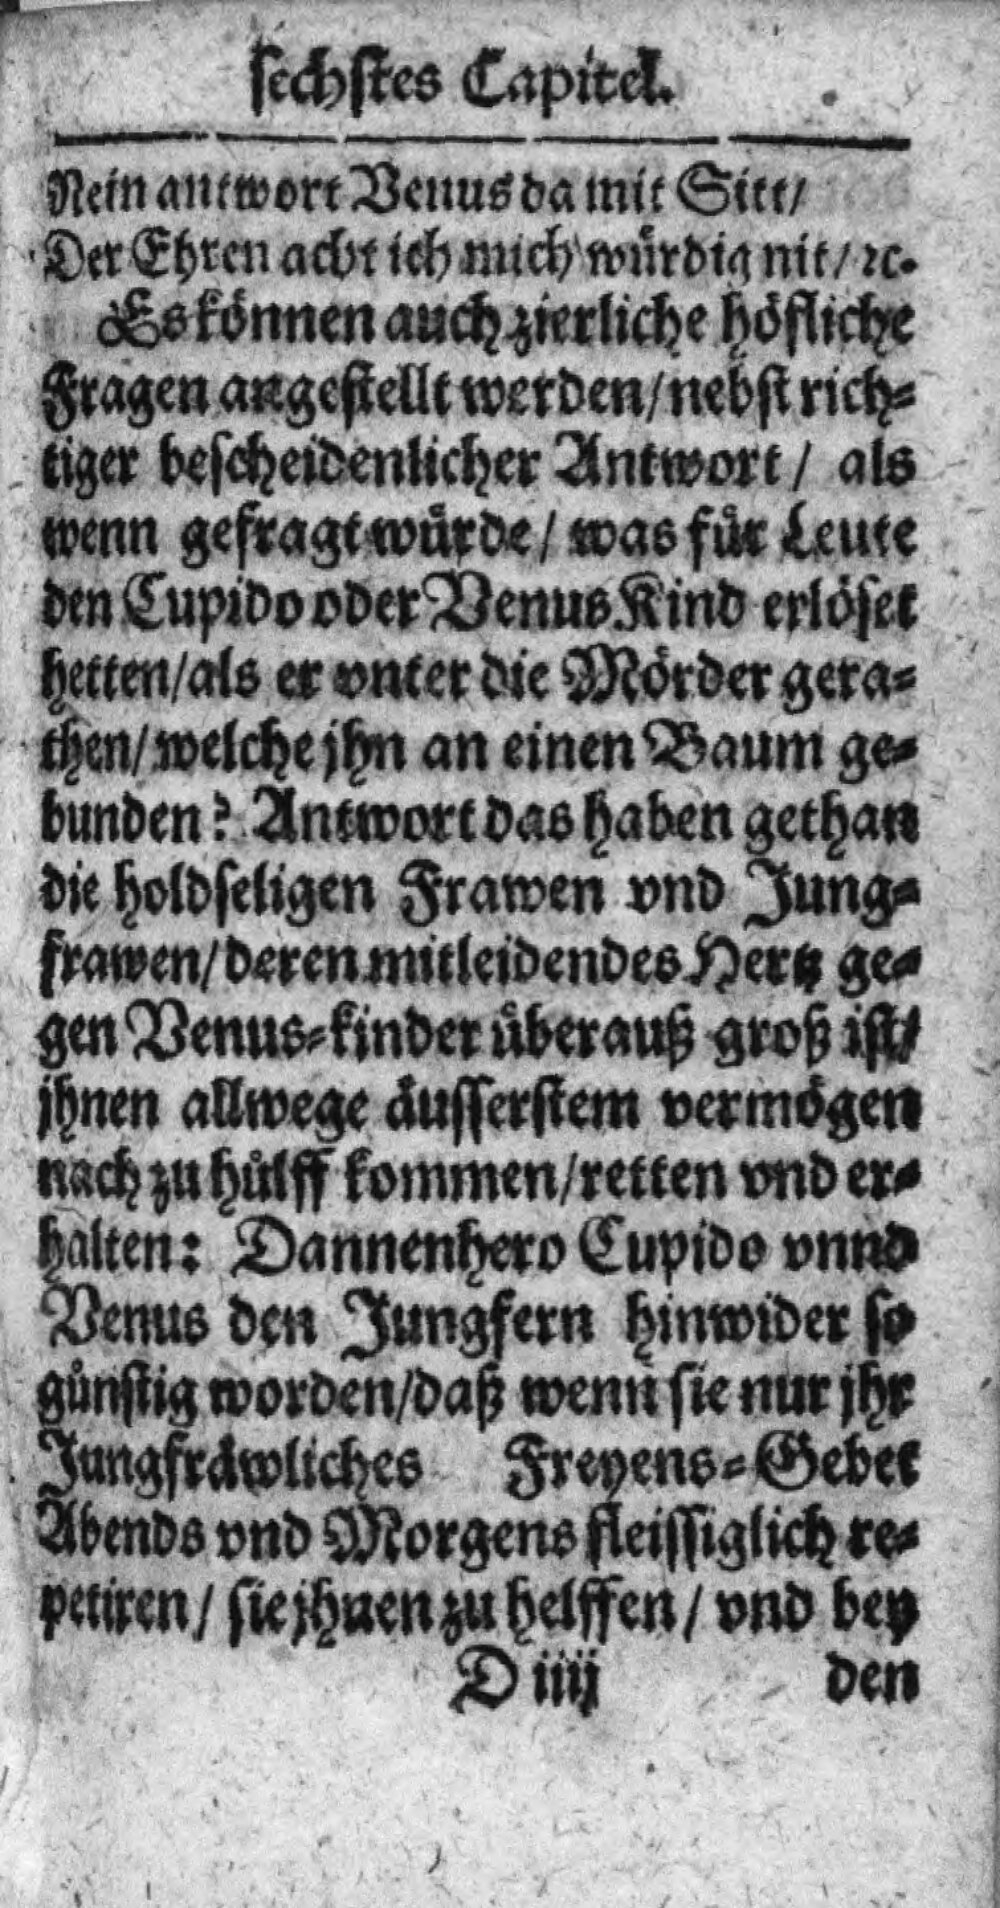 sechstes Capitel.
Nein antwort Venus da mit Sitt/
Der Ehren acht ich mich würdig nit/ ꝛc.
Es können auch zierliche höfliche
Fragen angestellt werden/ nebst rich-
tiger bescheidenlicher Antwort/ als
wenn gefragt würde/ was für Leute
den Cupido oder Venus Kind erlöset
hetten/ als er vnter die Mörder gera-
then/ welche jhn an einen Baum ge-
bunden? Antwort das haben gethan
die holdseligen Frawen vnd Jung-
frawen/ deren mitleidendes Hertz ge-
gen Venus-kinder überauß groß ist/
jhnen allwege äusserstem vermögen
nach zu hülff kommen/ retten vnd er-
halten: Dannenhero Cupido vnnd
Venus den Jungfern hinwider so
günstig worden/ daß wenn sie nur jhr
Jungfräwliches Freyens-Gebet
Abends vnd Morgens fleissiglich re-
petiren/ sie jhnen zu helffen/ vnd bey
D iiij den